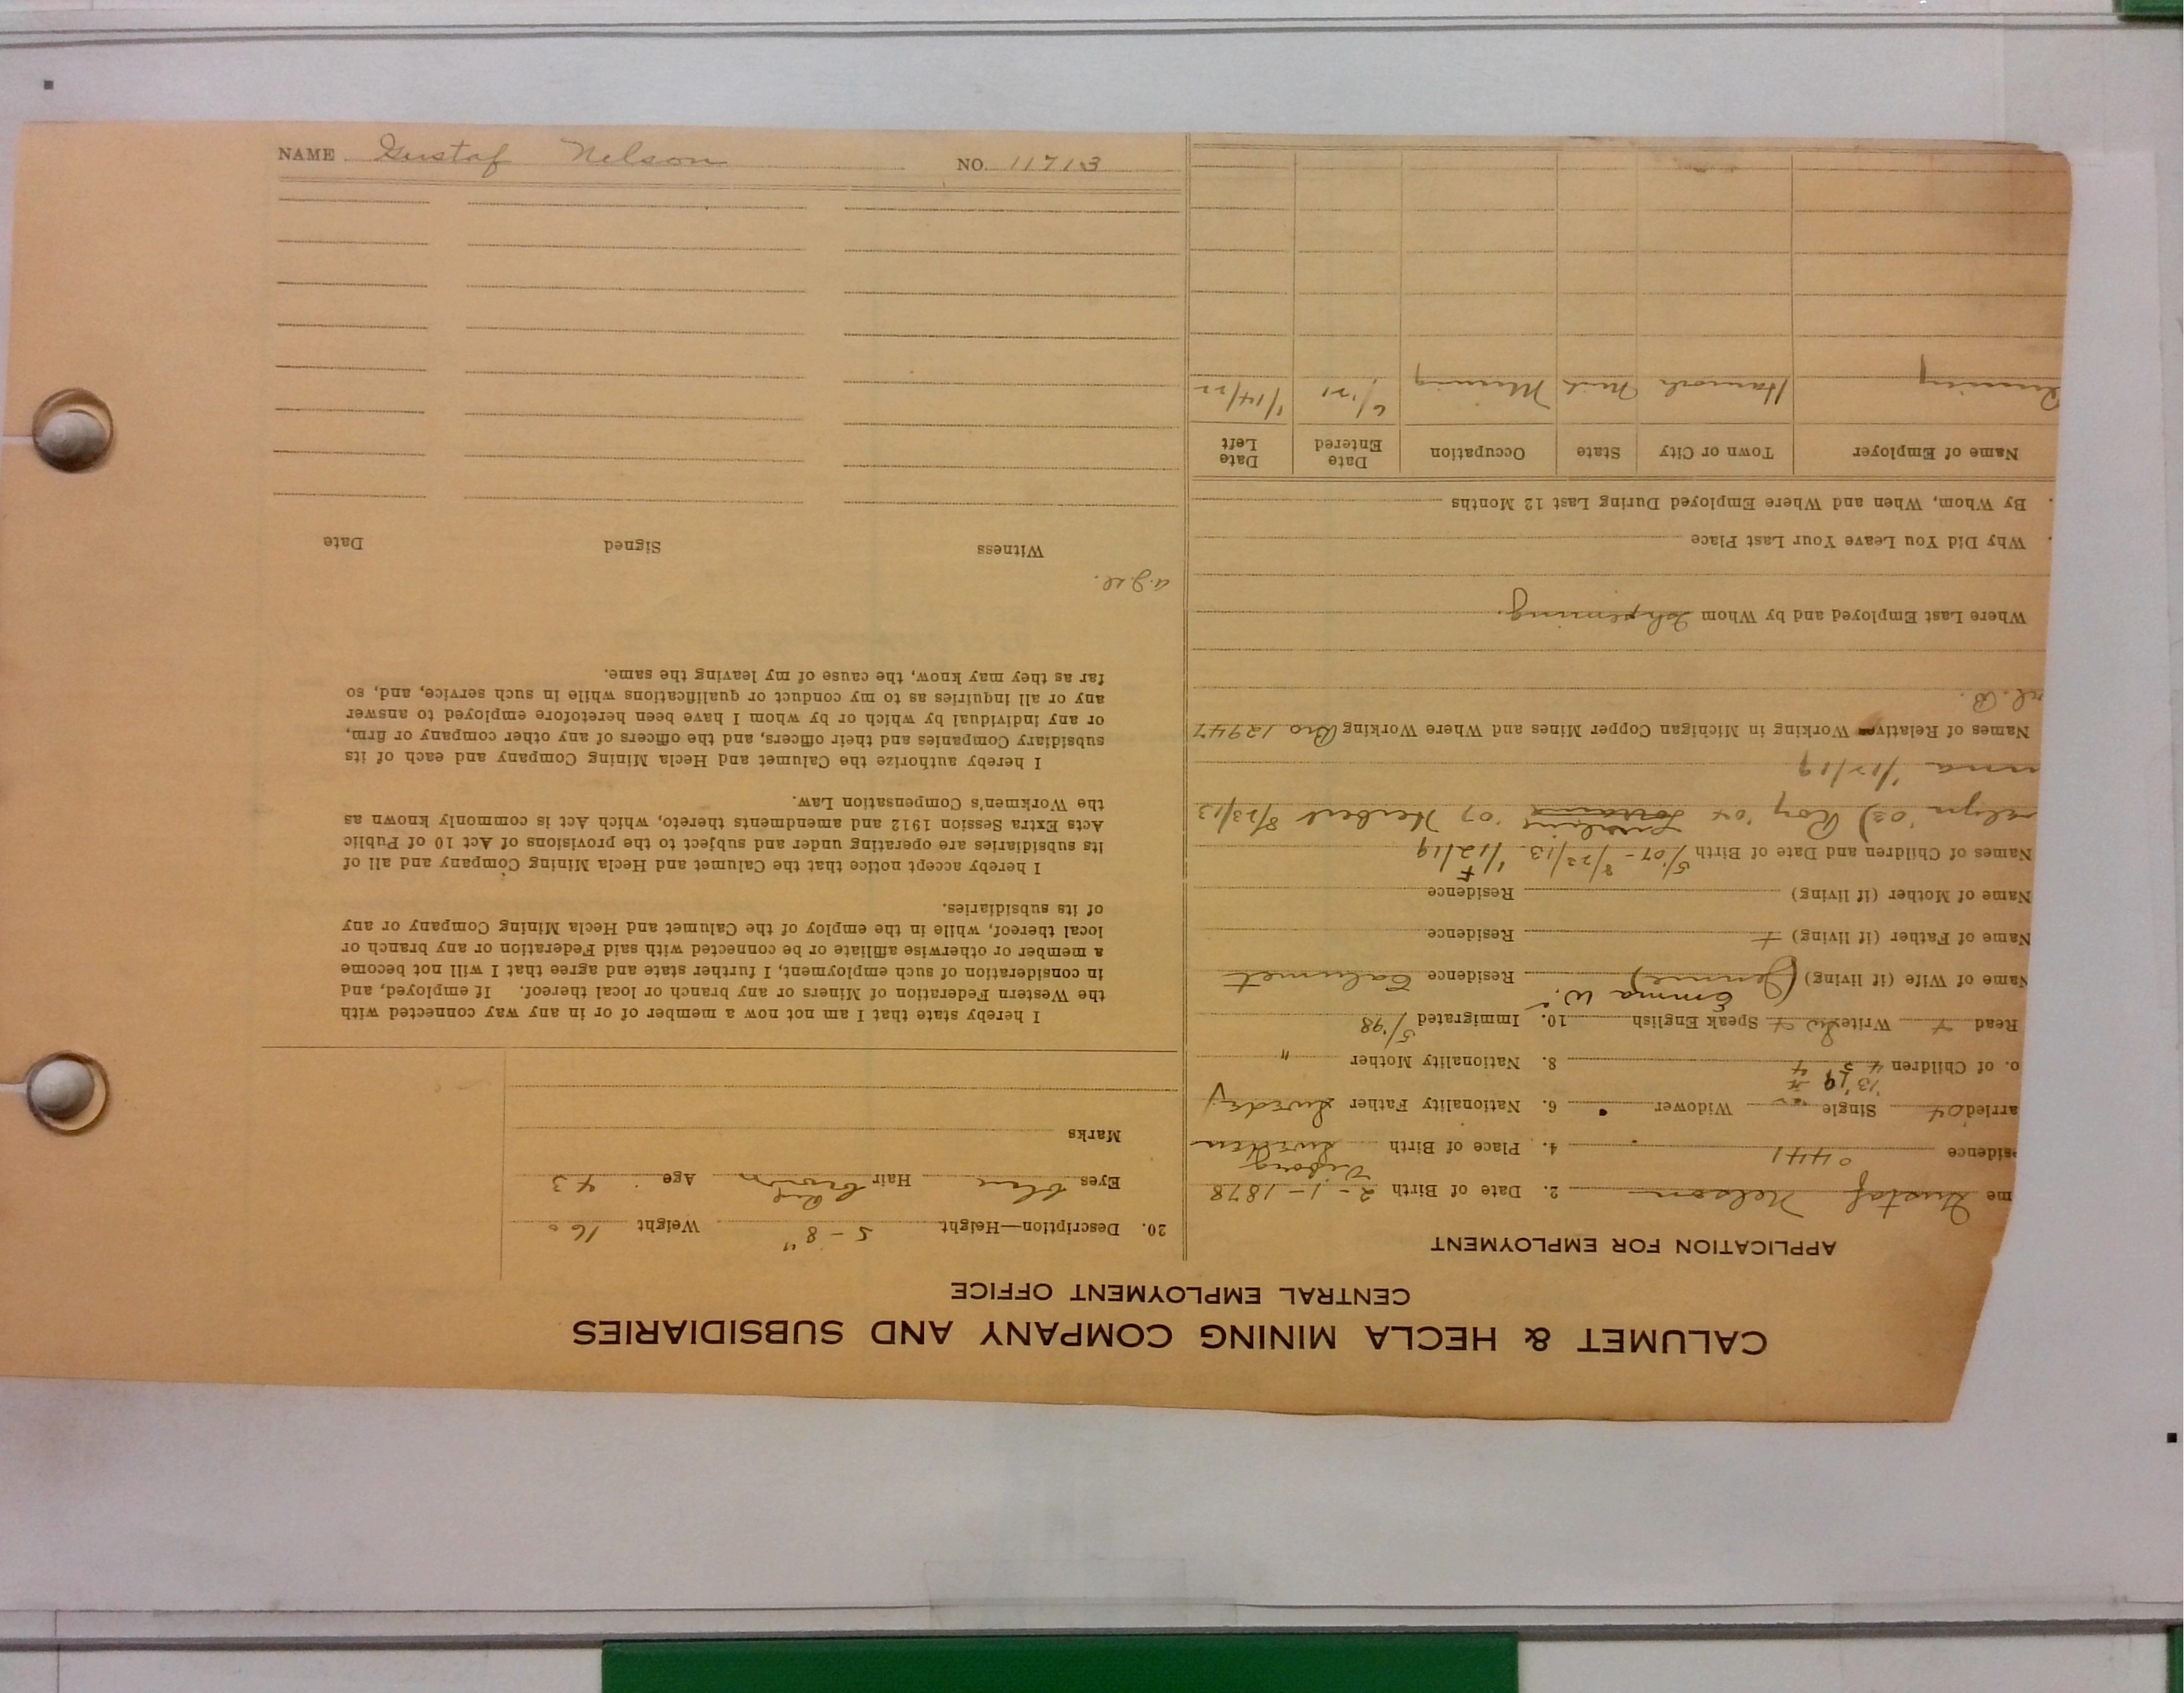 CALUMET & HECLA MINING COMPANY AND SUBSIDIARIES
CENTRAL EMPLOYMENT OFFICE
APPLICATION FOR EMPLOYMENT
me Gustaf Nelson 2. Date of Birth 2-1-1878
sidence 0441 4. Place of Birth Sweden
arried 04 Single Widower 6. Nationality Father Swede
'13 '19
o. of Children 4 5 4 8. Nationality Mother "
Read + Write Sw + Speak English 10. Immigrated 5/98
Emma W.
Name of Wife (if living) (Jennie) Residence Calumet
Name of Father (if living) + Residence
Name of Mother (if living) Residence
Names of Children and Date of Birth 5/07 - 8/23/13 1/12/19
elyn '03) Roy '04 '07 Herbert 8/23/13
mma 1/12/19
Names of Relatives Working in Michigan Copper Mines and Where Working Bro 12947
Where Last Employed and by Whom Ishpeming.
Why Did You Leave Your Last Place
By Whom, When and Where Employed During Last 12 Months
Name of Employer Town or City State Occupation Date Entered Date Left
Quincy Hancock Mich Mining 6/21 1/14/22
20. Description—Height 5-8" Weight 160
Eyes blue Hair brown Age 43
Marks
I hereby state that I am not now a member of or in any way connected with
the Western Federation of Miners or any branch or local thereof. If employed, and
in consideration of such employment, I further state and agree that I will not become
a member or otherwise affiliate or be connected with said Federation or any branch or
local thereof, while in the employ of the Calumet and Hecla Mining Company or any
of its subsidiaries.
I hereby accept notice that the Calumet and Hecla Mining Company and all of
its subsidiaries are operating under and subject to the provisions of Act 10 of Public
Acts Extra Session 1912 and amendments thereto, which Act is commonly known as
the Workmen's Compensation Law.
I hereby authorize the Calumet and Hecla Mining Company and each of its
subsidiary Companies and their officers, and the officers of any other company or firm,
or any individual by which or by whom I have been heretofore employed to answer
any or all inquiries as to my conduct or qualifications while in such service, and, so
far as they may know, the cause of my leaving the same.
Witness Signed Date
NAME Gustaf Nelson NO. 11713